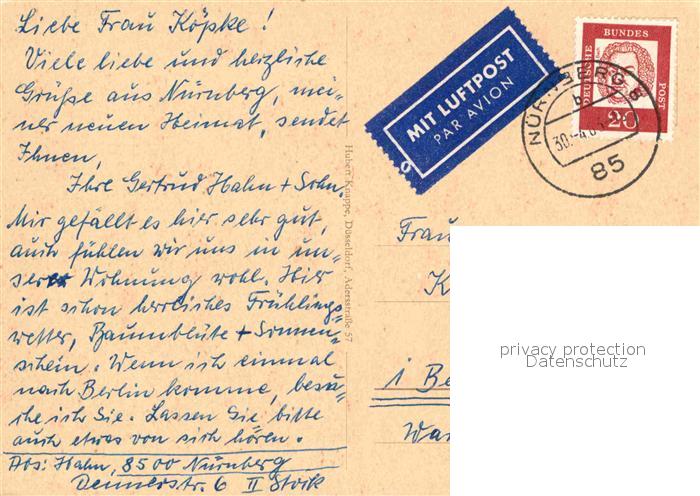 Liebe Frau Köpke!
Viele liebe und herzliche
Grüße aus Nürnberg, mei-
ner neuen Heimat, sendet
Ihnen,
Ihre Gertrud Hahn + Sohn.
Mir gefällt es hier sehr gut,
auch fühlen wir uns in un-
serer Wohnung wohl. Hier
ist schon herrliches Frühlings-
wetter, Baumblüte + Sonnen-
schein. Wenn ich einmal
nach Berlin komme, besu-
che ich Sie. Lassen Sie bitte
auch etwas von sich hören.
Abs: Hahn, 8500 Nürnberg
Dennerstr. 6 II Stock
Hubert Knuppe, Düsseldorf, Adersstraße 57
MIT LUFTPOST
PAR AVION
DEUTSCHE BUNDES POST
20
NÜRNBERG 8
30.-4.6
85
Frau
K
i Be
Wa
privacy protection
Datenschutz